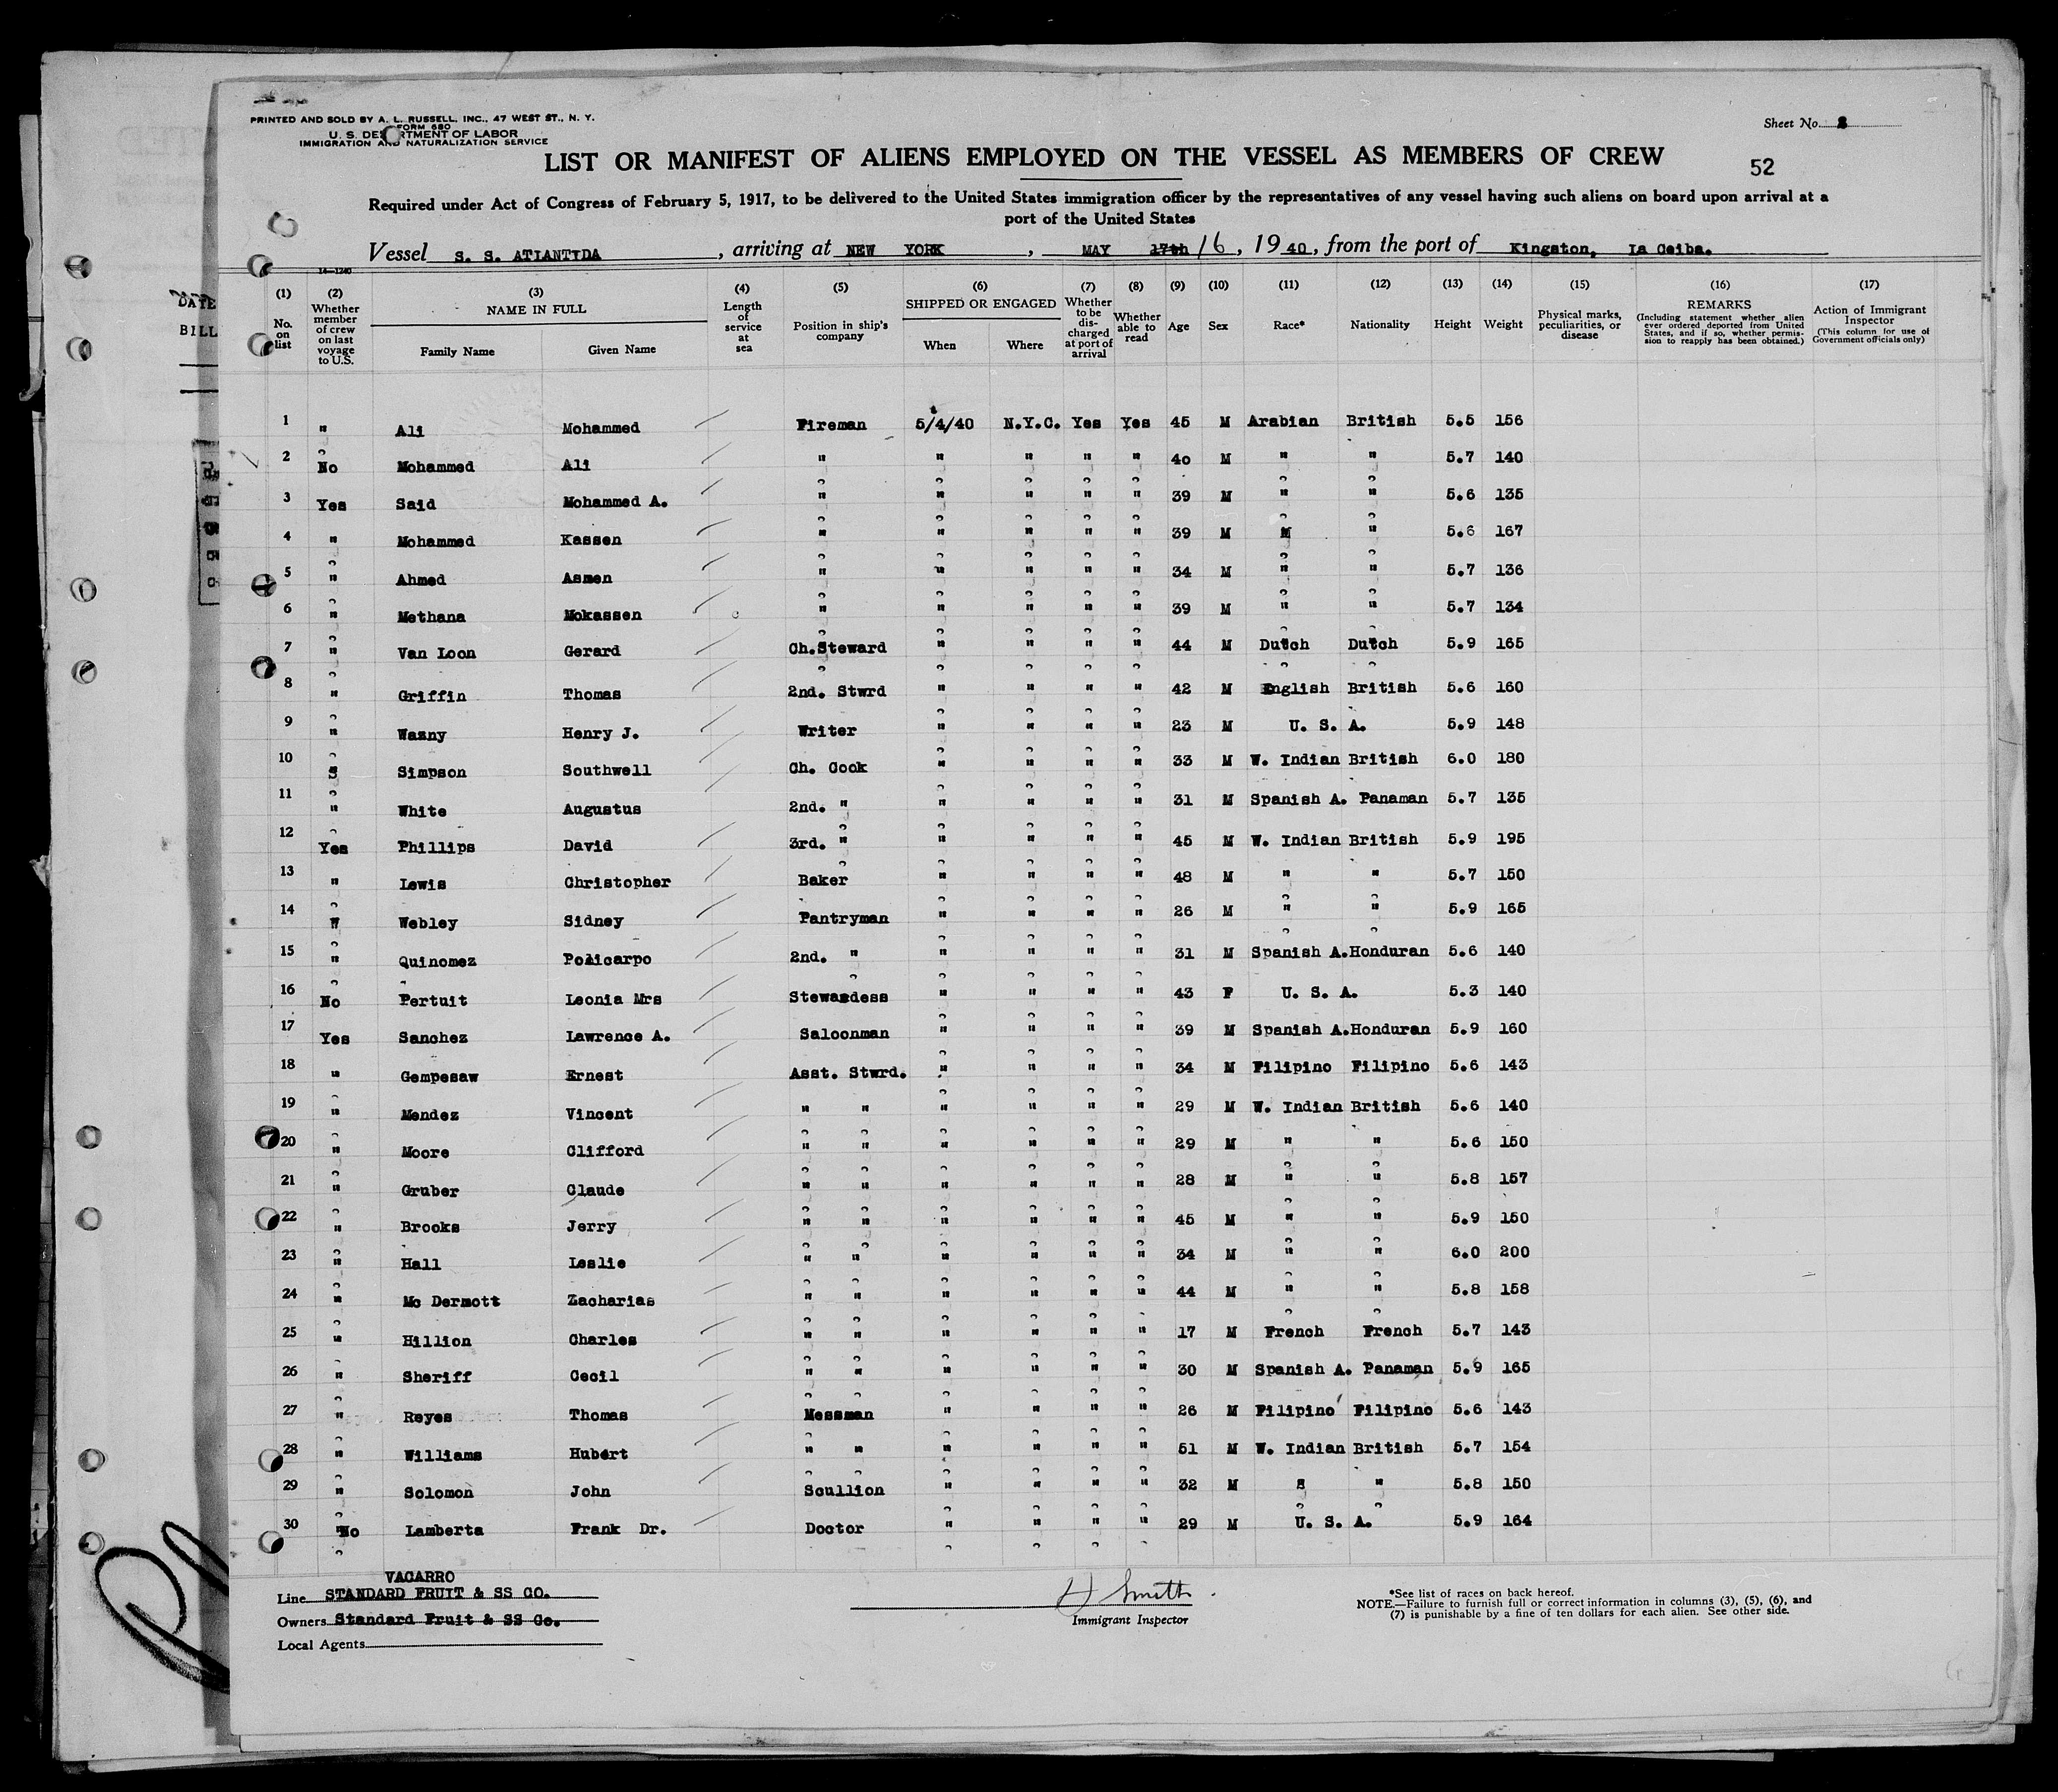 PRINTED AND SOLD BY A. L. RUSSELL, INC., 47 WEST ST., N. Y.
FORM 680
U. S. DEPARTMENT OF LABOR
IMMIGRATION AND NATURALIZATION SERVICE
Sheet No. 2
LIST OR MANIFEST OF ALIENS EMPLOYED ON THE VESSEL AS MEMBERS OF CREW
52
Required under Act of Congress of February 5, 1917, to be delivered to the United States immigration officer by the representatives of any vessel having such aliens on board upon arrival at a
port of the United States
Vessel S. S. ATLANTIDA, arriving at NEW YORK, MAY 17th 16, 1940, from the port of Kingston, La Ceiba.
14-1240
DATE
BILL
(1) No. on list (2) Whether member of crew on last voyage to U.S. (3) NAME IN FULL Family Name Given Name (4) Length of service at sea (5) Position in ship's company (6) SHIPPED OR ENGAGED When Where (7) Whether to be discharged at port of arrival (8) Whether able to read (9) Age (10) Sex (11) Race* (12) Nationality (13) Height (14) Weight (15) Physical marks, peculiarities, or disease (16) REMARKS (Including statement whether alien ever ordered deported from United States, and if so, whether permission to reapply has been obtained.) (17) Action of Immigrant Inspector (This column for use of Government officials only)
1 " Ali Mohammed Fireman 5/4/40 N.Y.C. Yes Yes 45 M Arabian British 5.5 156
2 No Mohammed Ali " " " " " 40 M " " 5.7 140
3 Yes Said Mohammed A. " " " " " 39 M " " 5.6 135
4 " Mohammed Kassen " " " " " 39 M M " 5.6 167
5 " Ahmed Asmen " " " " " 34 M " " 5.7 136
6 " Methana Mokassen " " " " " 39 M " " 5.7 134
7 " Van Loon Gerard Ch.Steward " " " " 44 M Dutch Dutch 5.9 165
8 " Griffin Thomas 2nd. Stwrd " " " " 42 M English British 5.6 160
9 " Wazny Henry J. Writer " " " " 23 M U. S. A. 5.9 148
10 " Simpson Southwell Ch. Cook " " " " 33 M W. Indian British 6.0 180
11 " White Augustus 2nd. " " " " " 31 M Spanish A. Panaman 5.7 135
12 Yes Phillips David 3rd. " " " " " 45 M W. Indian British 5.9 195
13 " Lewis Christopher Baker " " " " 48 M " " 5.7 150
14 " Webley Sidney Pantryman " " " " 26 M " " 5.9 165
15 " Quinomez Policarpo 2nd. " " " " " 31 M Spanish A.Honduran 5.6 140
16 No Pertuit Leonia Mrs Stewardess " " " " 43 F U. S. A. 5.3 140
17 Yes Sanchez Lawrence A. Saloonman " " " " 39 M Spanish A.Honduran 5.9 160
18 " Gempesaw Ernest Asst. Stwrd. " " " " 34 M Filipino Filipino 5.6 143
19 " Mendez Vincent " " " " " " 29 M W. Indian British 5.6 140
20 " Moore Clifford " " " " " " 29 M " " 5.6 150
21 " Gruber Claude " " " " " " 28 M " " 5.8 157
22 " Brooks Jerry " " " " " " 45 M " " 5.9 150
23 " Hall Leslie " " " " " " 34 M " " 6.0 200
24 " Mc Dermott Zacharias " " " " " " 44 M " " 5.8 158
25 " Hillion Charles " " " " " " 17 M French French 5.7 143
26 " Sheriff Cecil " " " " " " 30 M Spanish A. Panaman 5.9 165
27 " Reyes Thomas Messman " " " " 26 M Filipino Filipino 5.6 143
28 " Williams Hubert " " " " " " 51 M W. Indian British 5.7 154
29 " Solomon John Scullion " " " " 32 M S " 5.8 150
30 No Lamberta Frank Dr. Doctor " " " " 29 M U. S. A. 5.9 164
VACARRO
Line STANDARD FRUIT & SS CO.
Owners Standard Fruit & SS Co.
Local Agents
H Smith
Immigrant Inspector
*See list of races on back hereof.
NOTE.—Failure to furnish full or correct information in columns (3), (5), (6), and
(7) is punishable by a fine of ten dollars for each alien. See other side.